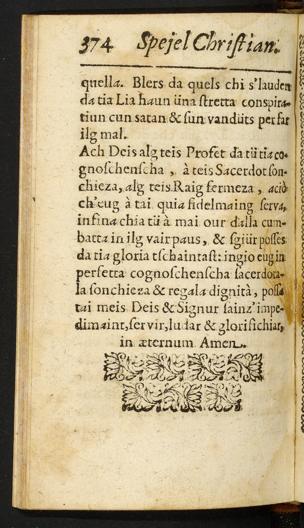 374 Spejel Christian.
quella. Blers da quels chi s'lauden
da tia Lia haun üna stretta conspira-
tiun cun satan & sun vandüts per far
ilg mal.
Ach Deis alg teis Profet da tü tia co-
gnoschenscha, à teis Sacerdot son-
chieza, alg teis Raig fermeza, aciò
ch'eug à tai quia fidelmaing serva,
infina chia tü à mai our dalla cum-
batta in ilg vair paus, & sgiür posses
da tia gloria tschaintast: ingio eug in
perfetta cognoschenscha sacerdota-
la sonchieza & regala dignità, possa
tai meis Deis & Signur sainz' impe-
dimaint, servir, ludar & glorifichiar,
in æternum Amen.